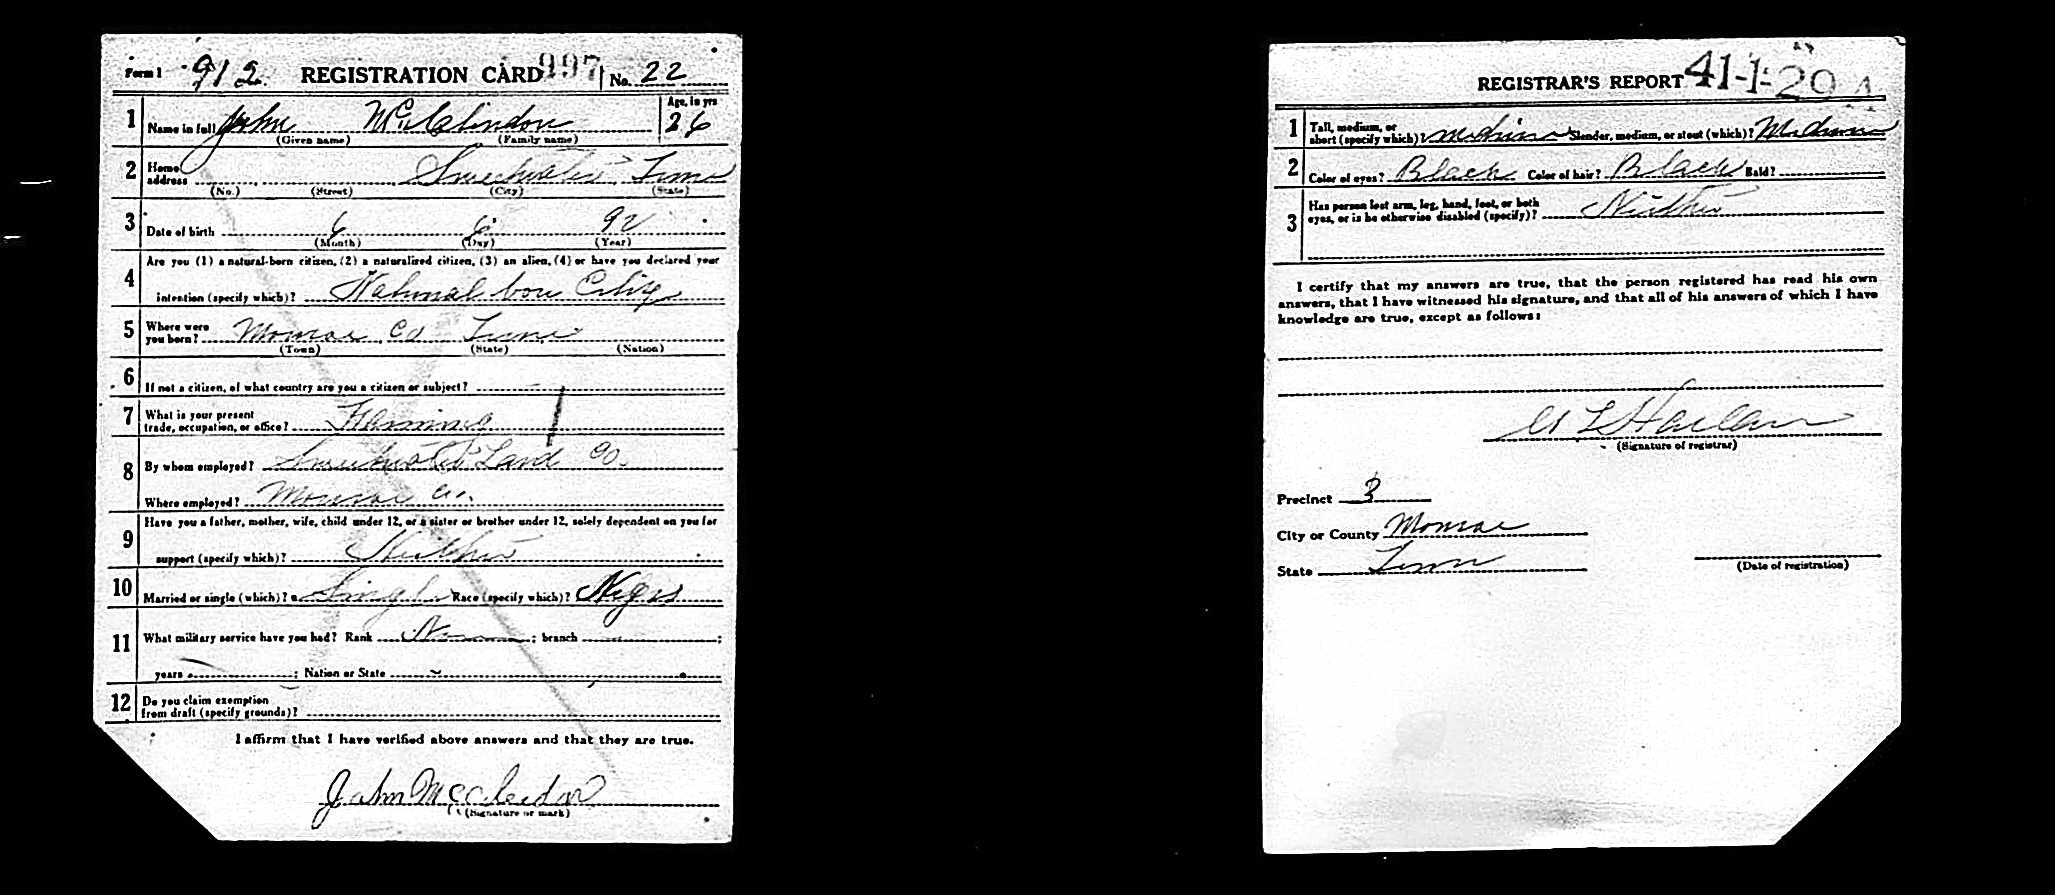 Form 1 912 REGISTRATION CARD 997 No. 22
1 Name in full John McClindon Age, in yrs 26
(Given name) (Family name)
2 Home address Sweetwater Tenn
(No.) (Street) (City) (State)
3 Date of birth 6 6 92
(Month) (Day) (Year)
4 Are you (1) a natural-born citizen, (2) a naturalized citizen, (3) an alien, (4) or have you declared your
intention (specify which)? Natural born
5 Where were you born? Monroe Co Tenn
(Town) (State) (Nation)
6 If not a citizen, of what country are you a citizen or subject?
7 What is your present
trade, occupation, or office? Farming
8 By whom employed? Sweetwater Land Co.
Where employed? Monroe Co.
9 Have you a father, mother, wife, child under 12, or a sister or brother under 12, solely dependent on you for
support (specify which)? Neither
10 Married or single (which)? Single Race (specify which)? Negro
11 What military service have you had? Rank ; branch ;
years ; Nation or State
12 Do you claim exemption
from draft (specify grounds)?
I affirm that I have verified above answers and that they are true.
John McCleidon
(Signature or mark)
REGISTRAR'S REPORT 41-1-29 A
1 Tall, medium, or
short (specify which)? Medium Slender, medium, or stout (which)? Medium
2 Color of eyes? Black Color of hair? Black Bald?
3 Has person lost arm, leg, hand, foot, or both
eyes, or is he otherwise disabled (specify)? Neither
I certify that my answers are true, that the person registered has read his own
answers, that I have witnessed his signature, and that all of his answers of which I have
knowledge are true, except as follows:
Harlan
(Signature of registrar)
Precinct 3
City or County Monroe
State Tenn
(Date of registration)